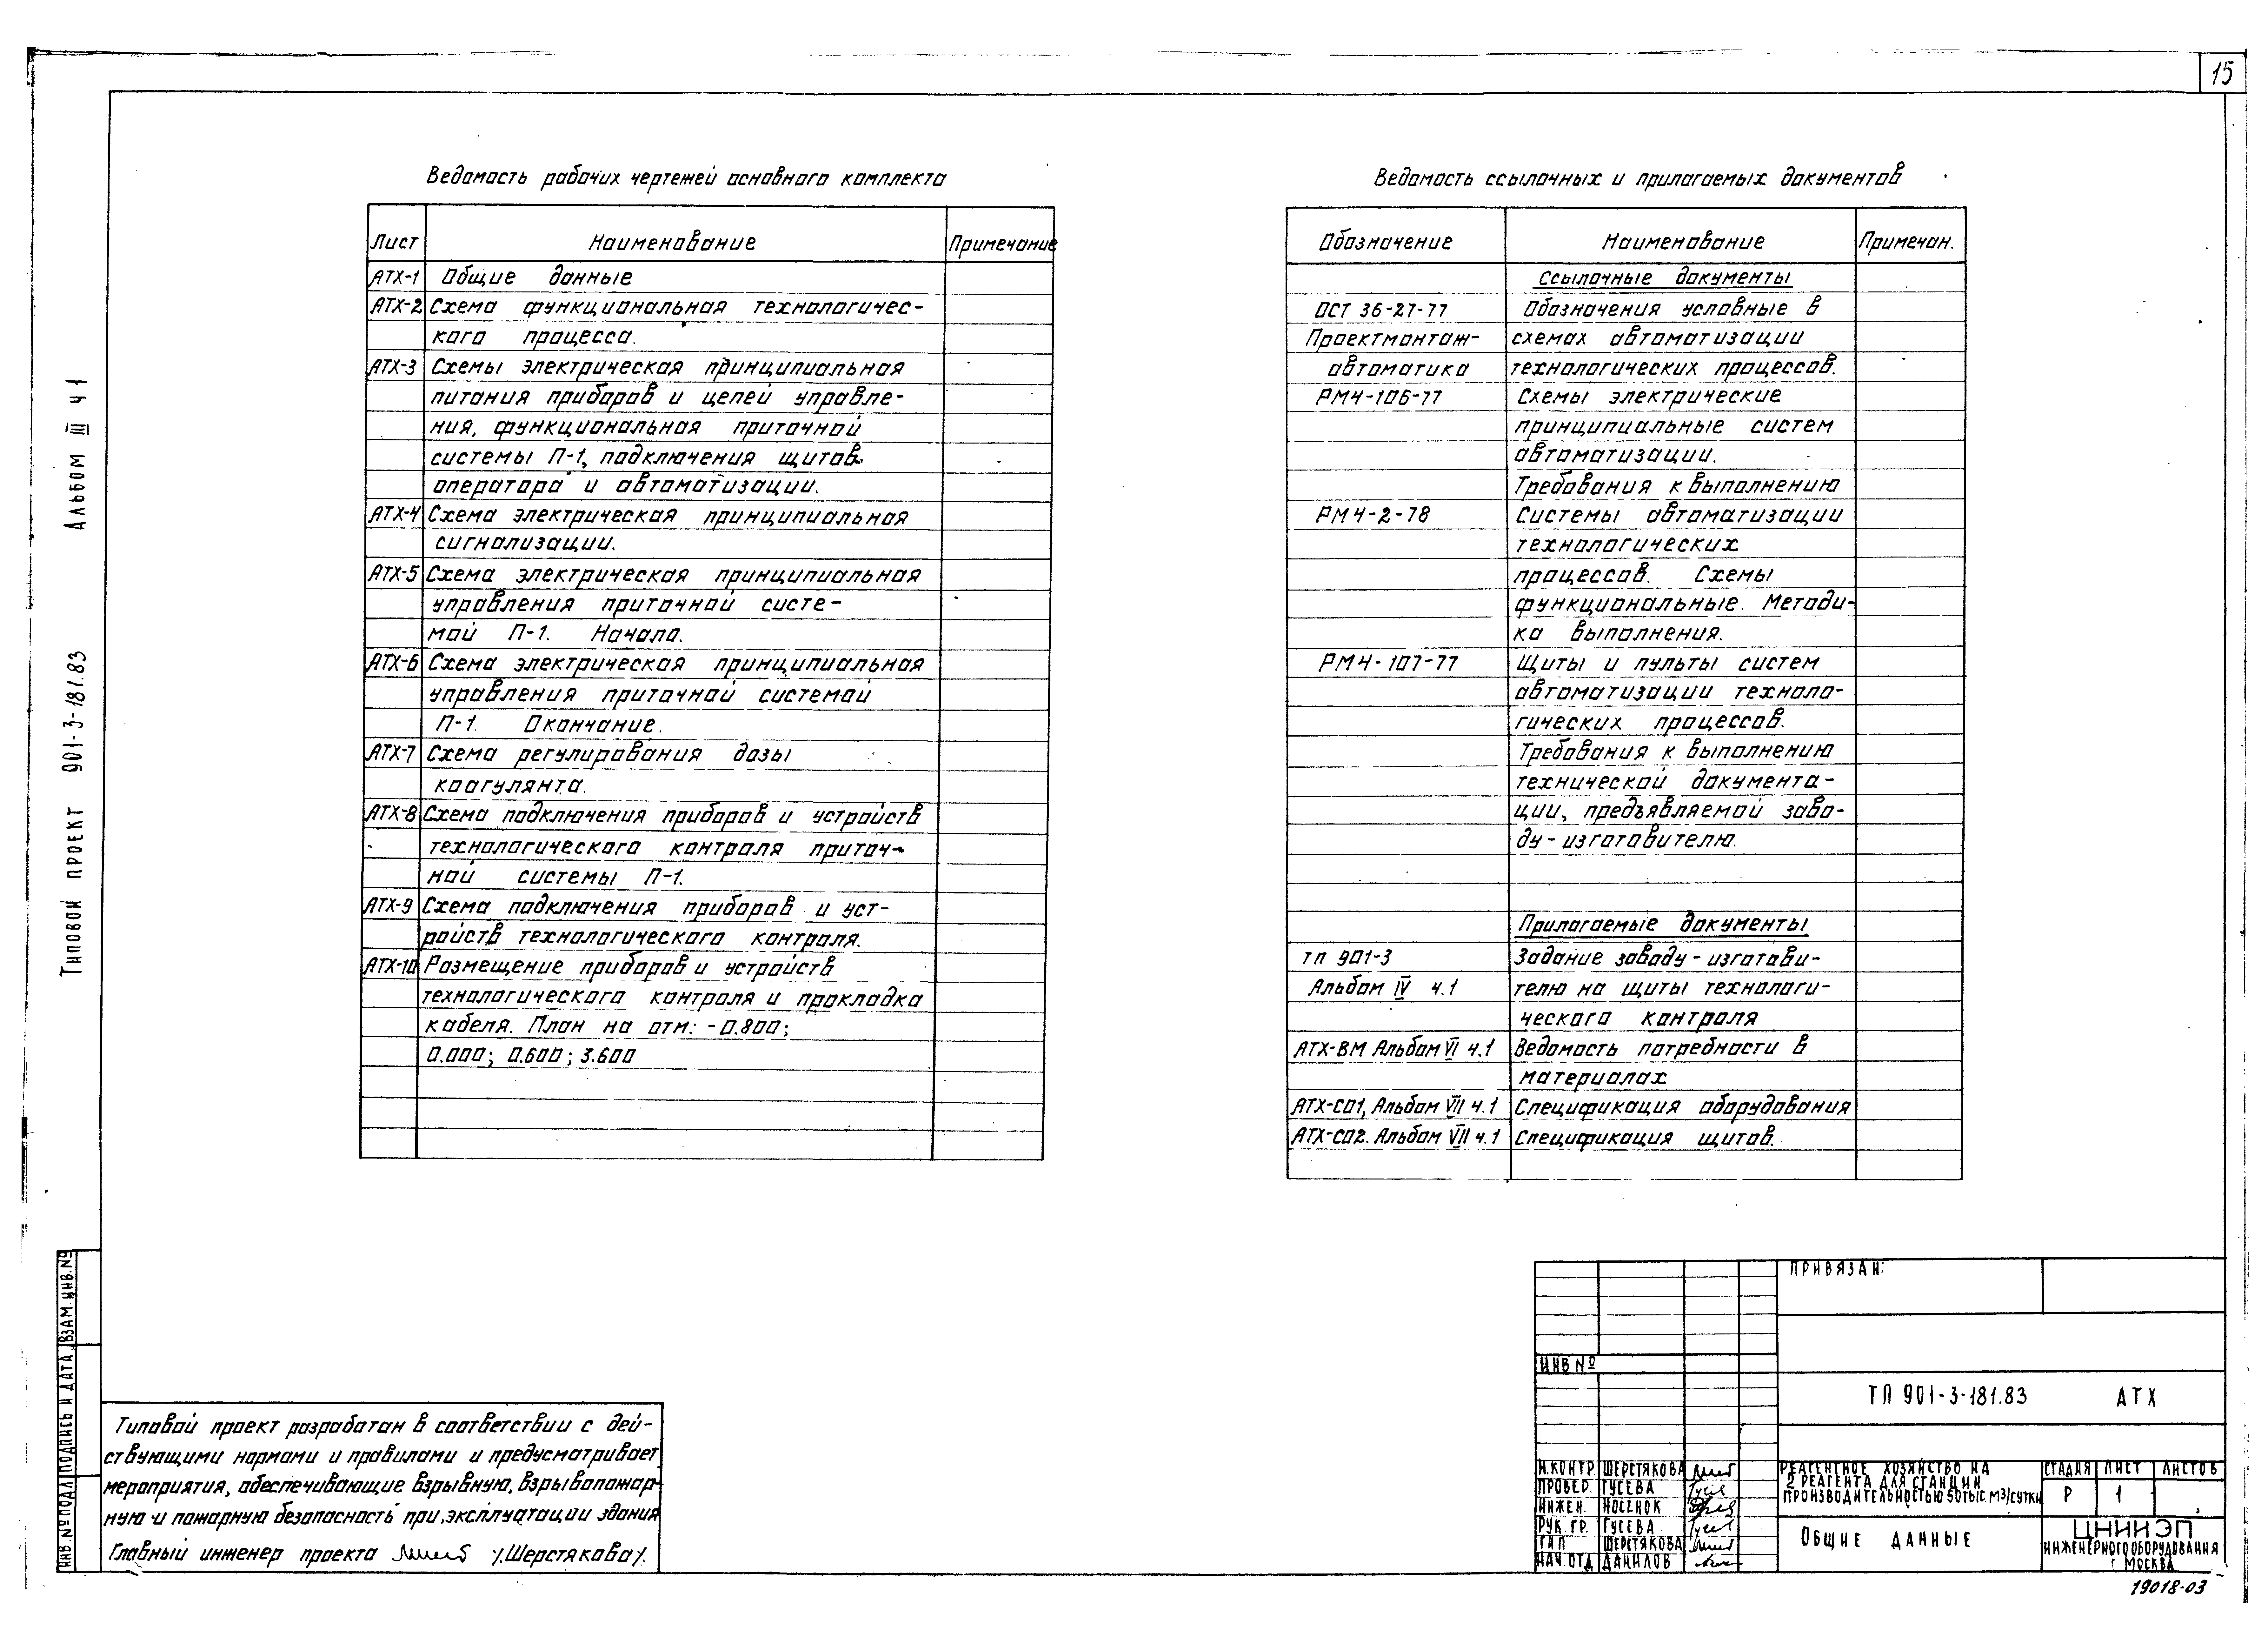 15
Ведомость рабочих чертежей основного комплекта
Лист Наименование Примечание
АТХ-1 Общие данные
АТХ-2 Схема функциональная технологичес-
кого процесса.
АТХ-3 Схемы электрическая принципиальная
питания приборов и цепей управле-
ния, функциональная приточной
системы П-1, подключения щитов
оператора и автоматизации.
АТХ-4 Схема электрическая принципиальная
сигнализации.
АТХ-5 Схема электрическая принципиальная
управления приточной систе-
мой П-1. Начало.
АТХ-6 Схема электрическая принципиальная
управления приточной системой
П-1. Окончание.
АТХ-7 Схема регулирования дозы
коагулянта.
АТХ-8 Схема подключения приборов и устройств
технологического контроля приточ-
ной системы П-1.
АТХ-9 Схема подключения приборов и уст-
ройств технологического контроля.
АТХ-10 Размещение приборов и устройств
технологического контроля и прокладка
кабеля. План на отм: -0.800;
0.000; 0.600; 3.600
Ведомость ссылочных и прилагаемых документов
Обозначение Наименование Примечан.
Ссылочные документы
ОСТ 36-27-77 Обозначения условные в
Проектмонтаж- схемах автоматизации
автоматика технологических процессов.
РМ4-106-77 Схемы электрические
принципиальные систем
автоматизации.
Требования к выполнению
РМ4-2-78 Системы автоматизации
технологических
процессов. Схемы
функциональные. Методи-
ка выполнения.
РМ4-107-77 Щиты и пульты систем
автоматизации техноло-
гических процессов.
Требования к выполнению
технической документа-
ции, предъявляемой заво-
ду-изготовителю.
Прилагаемые документы
тп 901-3 Задание заводу-изготови-
Альбом IV ч.1 телю на щиты технологи-
ческого контроля
АТХ-ВМ Альбом VI ч.1 Ведомость потребности в
материалах
АТХ-СО1, Альбом VII ч.1 Спецификация оборудования
АТХ-СО2. Альбом VII ч.1 Спецификация щитов.
Типовой проект 901-3-181.83 Альбом III ч 1
ИНВ.№ ПОДЛ ПОДПИСЬ И ДАТА ВЗАМ.ИНВ.№
Типовой проект разработан в соответствии с дей-
ствующими нормами и правилами и предусматривает
мероприятия, обеспечивающие взрывную, взрывопожар-
ную и пожарную безопасность при эксплуатации здания
Главный инженер проекта /Шерстякова/.
ПРИВЯЗАН:
ИНВ №
ТП 901-3-181.83 АТХ
Н.КОНТР. ШЕРСТЯКОВА
ПРОВЕР. ГУСЕВА
ИНЖЕН. НОСЕНОК
РУК. ГР. ГУСЕВА
ГИП ШЕРСТЯКОВА
НАЧ.ОТД ДАНИЛОВ
РЕАГЕНТНОЕ ХОЗЯЙСТВО НА
2 РЕАГЕНТА ДЛЯ СТАНЦИИ
ПРОИЗВОДИТЕЛЬНОСТЬЮ 50 ТЫС. М3/СУТКИ
СТАДИЯ ЛИСТ ЛИСТОВ
Р 1
ОБЩИЕ ДАННЫЕ
ЦНИИЭП
ИНЖЕНЕРНОГО ОБОРУДОВАНИЯ
г МОСКВА
19018-03